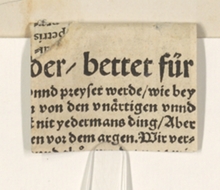 der/ bettet für
vnnd preyset werde/wie bey
von den vnärtigen vnnd
nit yedermans ding/Aber
en vor dem argen. Wir ver⸗